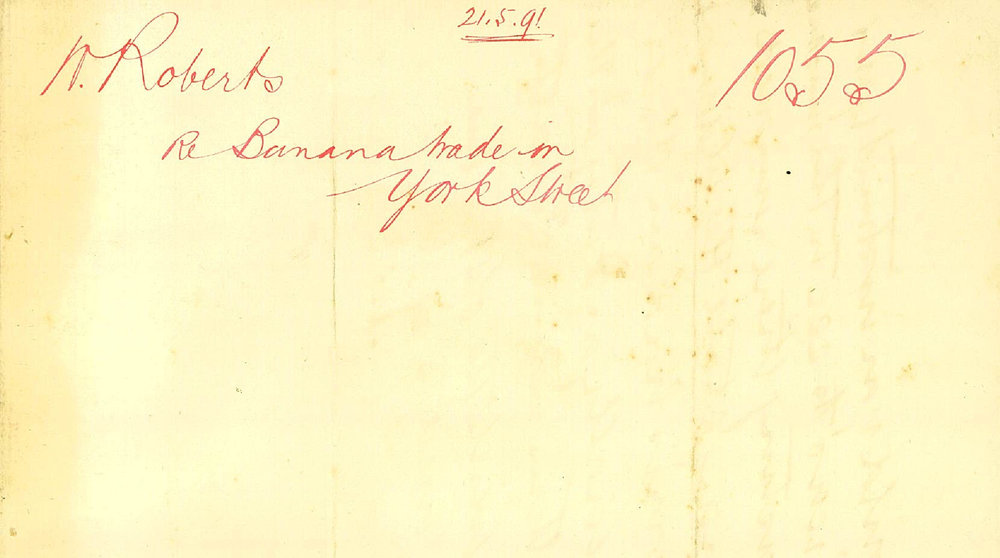 21.5.91
W. Roberts
1055
Re Banana trade in
York Street